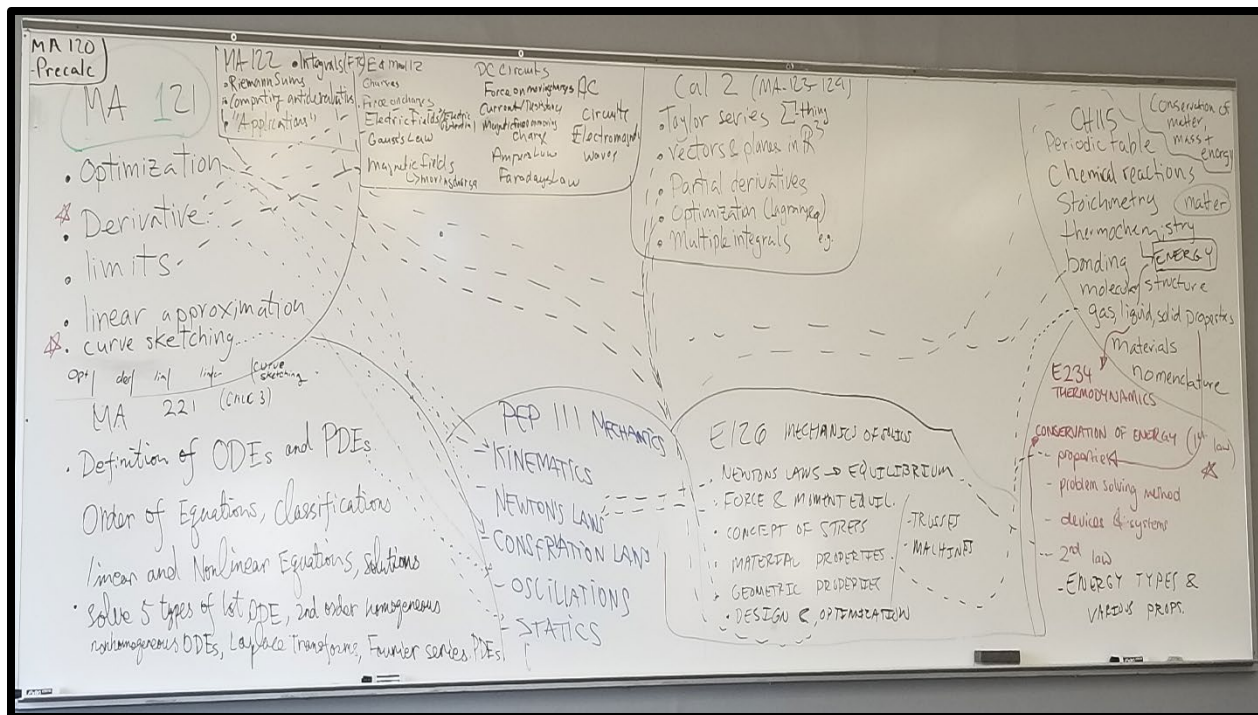 MA 120
-Precalc
MA 121
• Optimization
• Derivative
• limits
• linear approximation
• curve sketching
opt/ der/ lim/ linear curve sketching
MA 122 • Integrals (FTC)
• Riemann Sums
• Computing antiderivatives
• "Applications"
112
Charges
Force on charges
Electric Fields/Electric Potential
Gauss's Law
Magnetic fields
DC Circuits
Force on moving charges
Current/Resistance
Magnetic
Charge
Amperes Law
Faradays Law
AC
Circuits
Electromagn
waves
Cal 2 (MA 123-124)
• Taylor series Σ-thing
• Vectors & planes in R³
• Partial derivatives
• Optimization (Lagrange)
• Multiple integrals eg.
CH115
Periodic table
Chemical reactions
Stoichmetry matter
thermochemistry
ENERGY
bonding
molecular structure
gas, liquid, solid properties
materials
nomenclature
Conservation of
matter
mass +
energy
MA 221 (CALC 3)
• Definition of ODEs and PDEs
Order of Equations, Classifications
linear and Nonlinear Equations, solutions
• Solve 5 types of 1st ODE, 2nd order homogeneous
nonhomogeneous ODEs, Laplace Transforms, Fourier series. PDEs
PEP 111 MECHANICS
- KINEMATICS
- NEWTONS LAWS
- CONSERVATION LAWS
- OSCILLATIONS
- STATICS
E126 MECHANICS OF SOLIDS
• NEWTONS LAWS → EQUILIBRIUM
• FORCE & MOMENT EQUIL.
• CONCEPT OF STRESS
• MATERIAL PROPERTIES
• GEOMETRIC PROPERTIES
• DESIGN & OPTIMIZATION
- TRUSSES
- MACHINES
E234
THERMODYNAMICS
CONSERVATION OF ENERGY (1st law)
- properties
- problem solving method
- devices & systems
- 2nd law
- ENERGY TYPES &
VARIOUS PROPS.